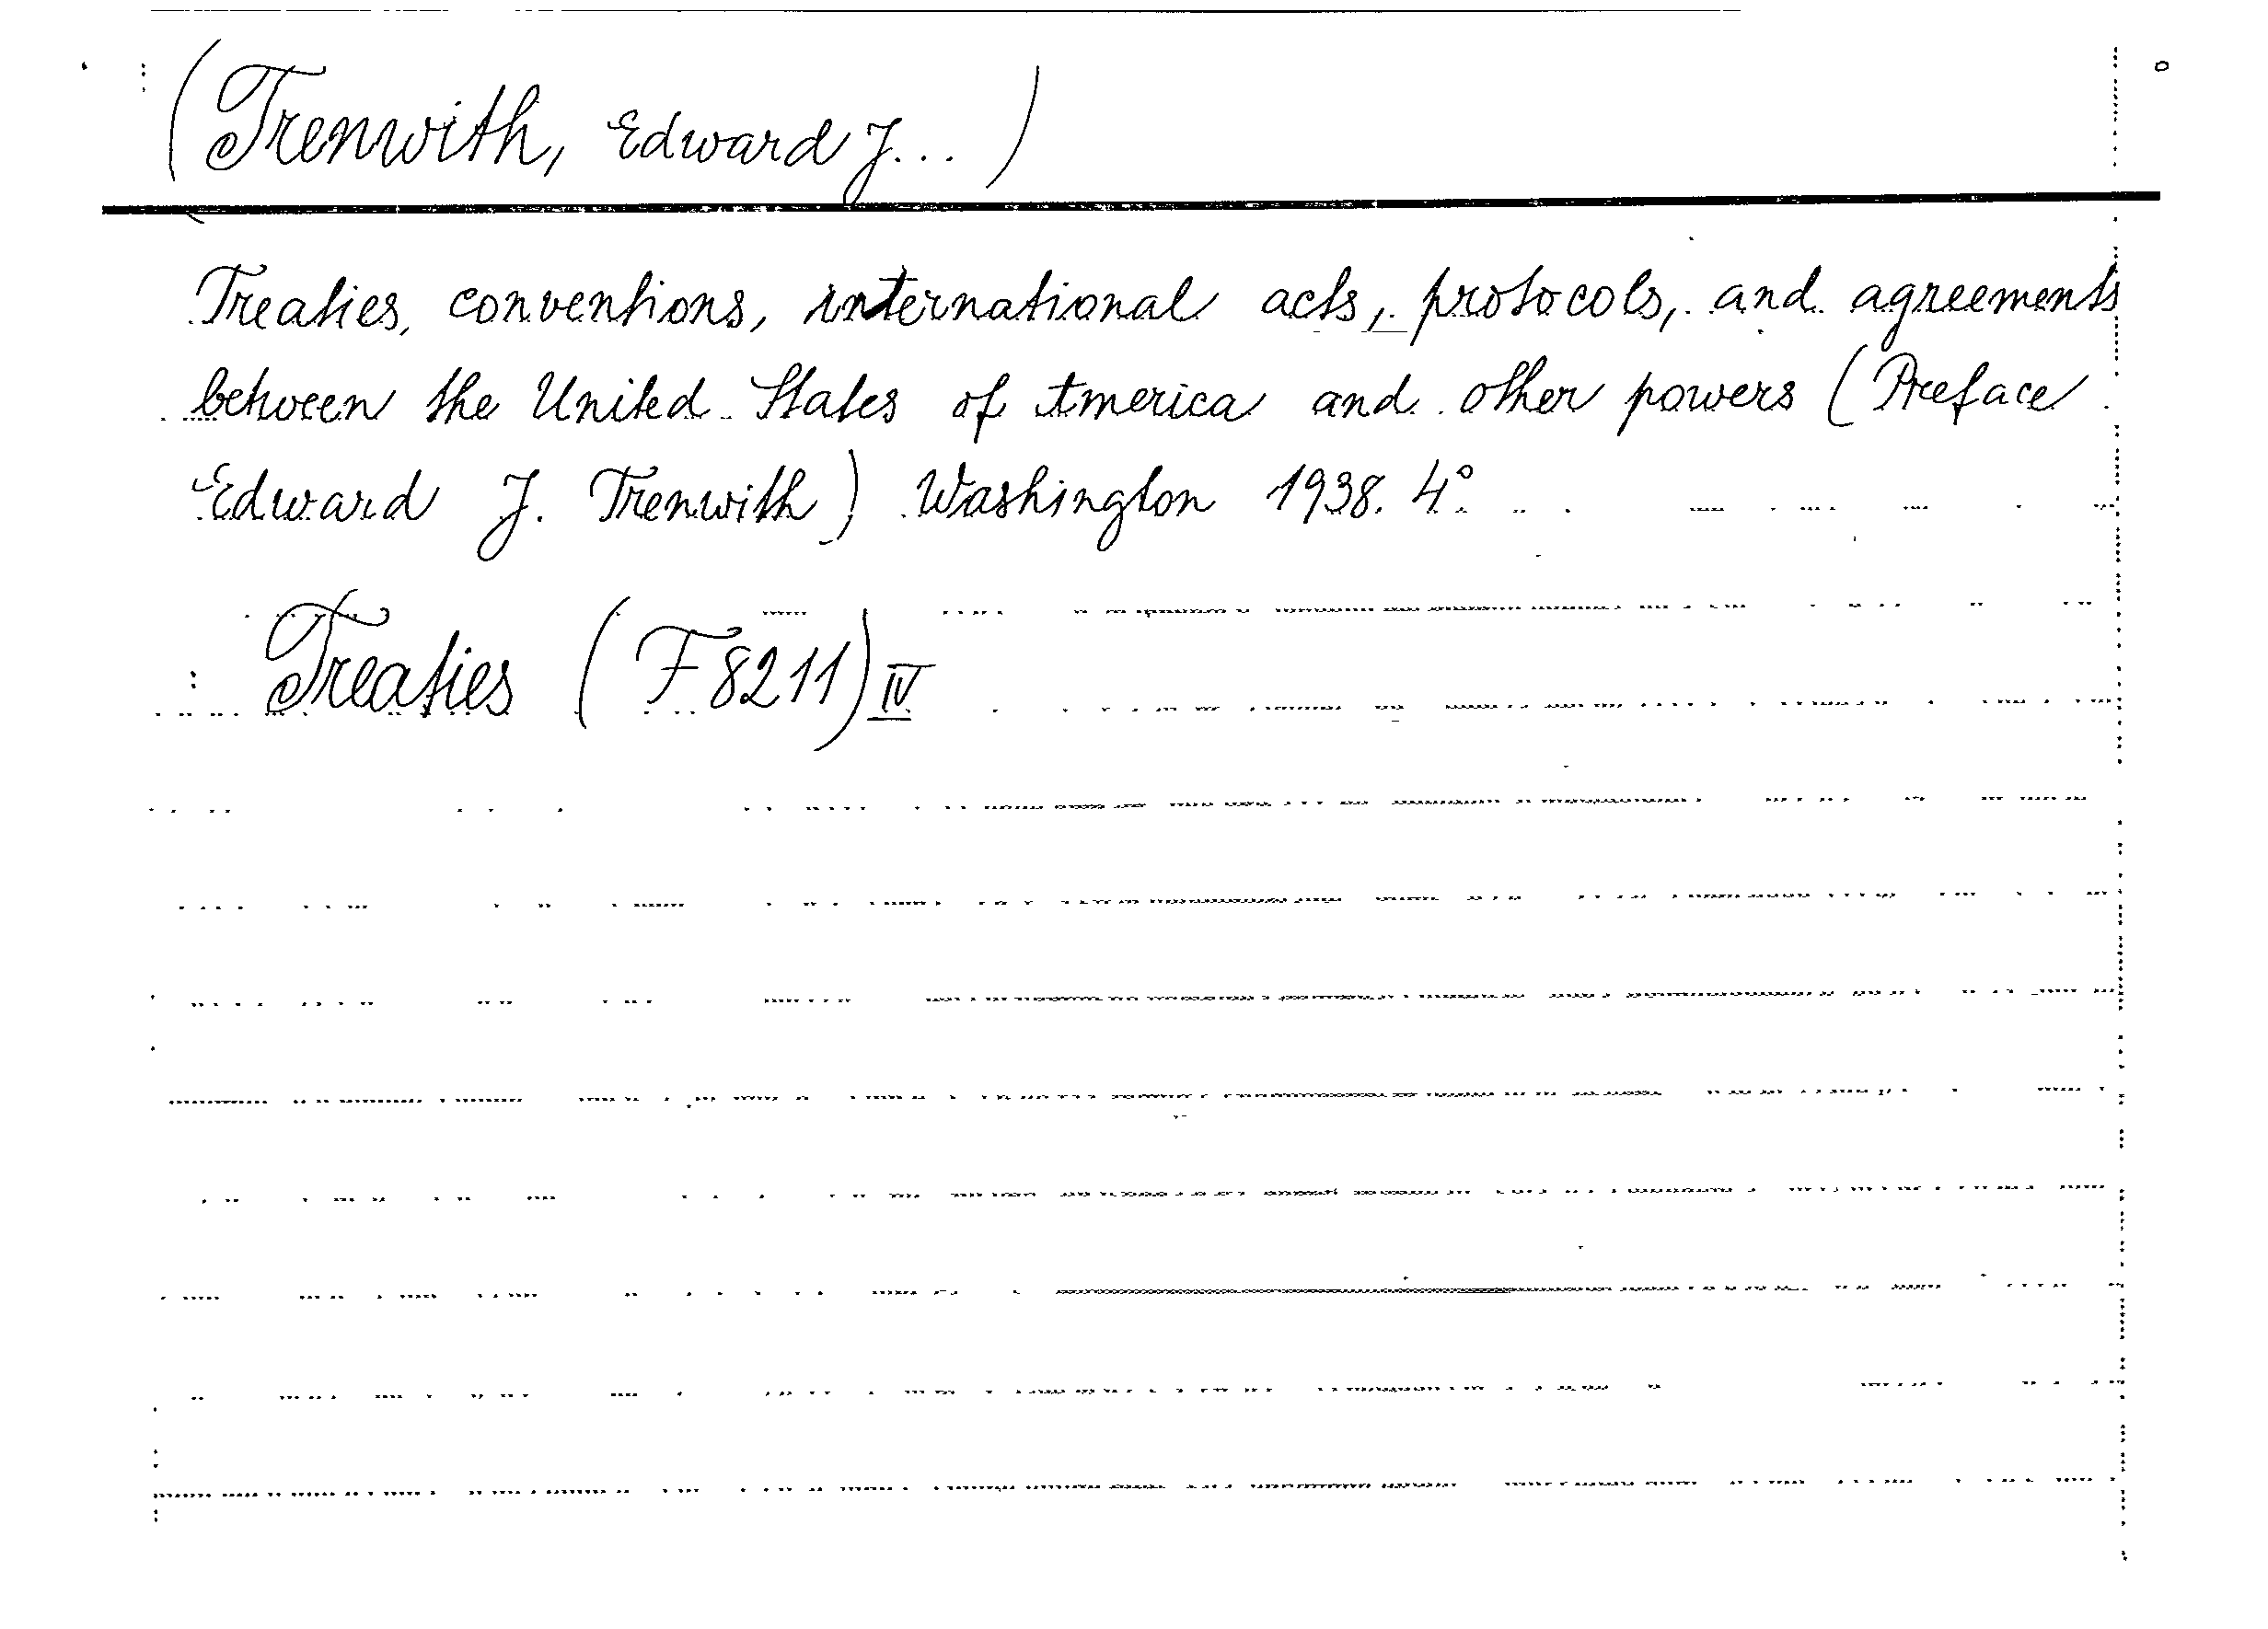 (Trenwith, Edward J...)
Treaties, conventions, international acts, protocols, and agreements
between the United States of America and other powers (Preface
Edward J. Trenwith) Washington 1938. 4°
Treaties (F 8211) IV